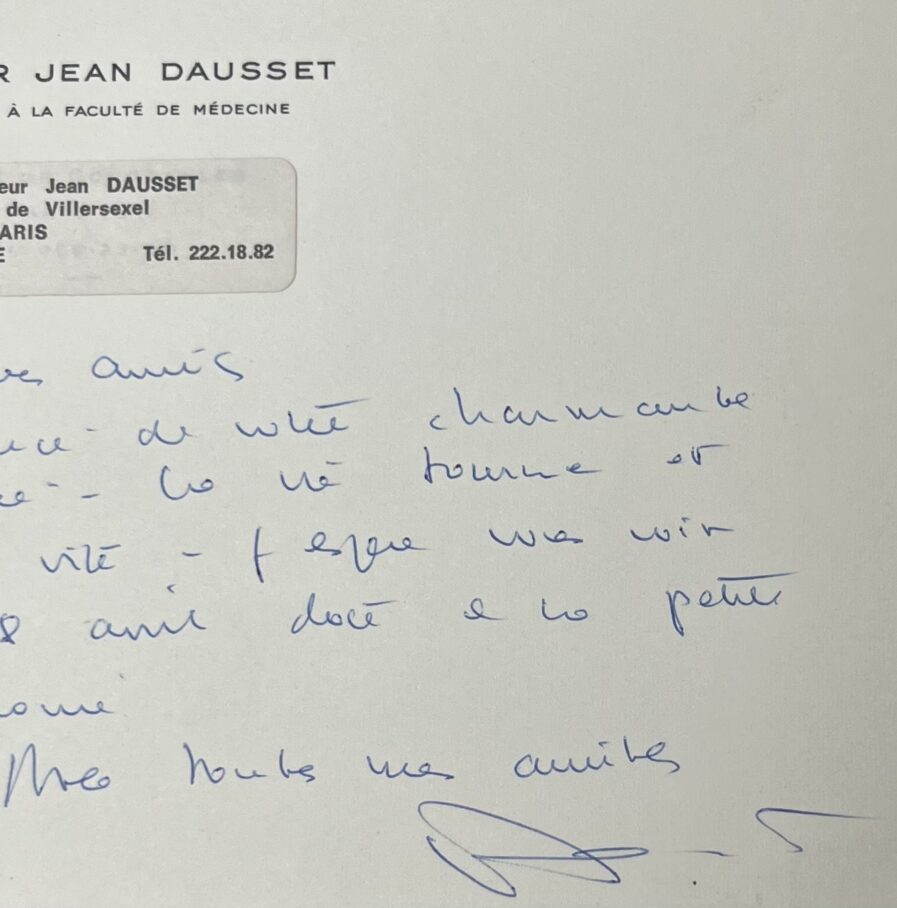 R JEAN DAUSSET
À LA FACULTÉ DE MÉDECINE
eur Jean DAUSSET
de Villersexel
ARIS
E Tél. 222.18.82
amis
de votre charmante
La vie tourne et
vite - J espere vous voir
8 avril date de la petite
Avec toutes mes amitiés